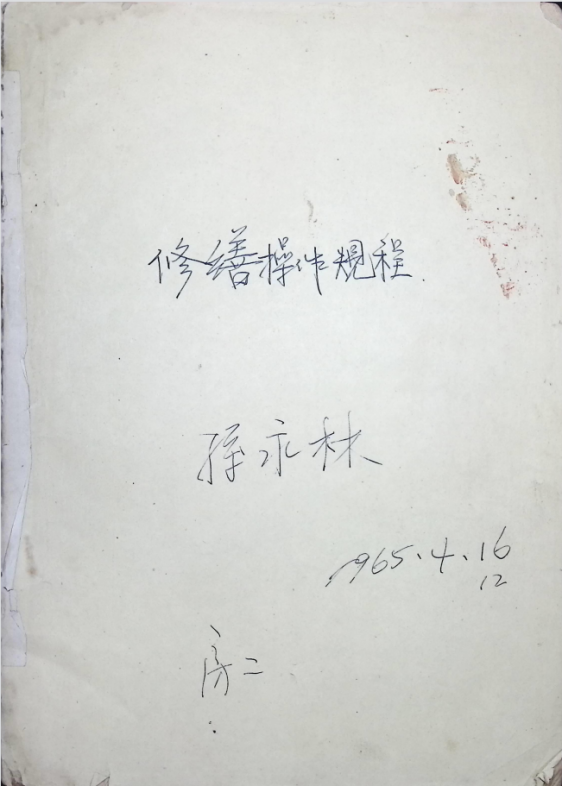 修缮操作规程
孫永林
1965.4.16
12
房二